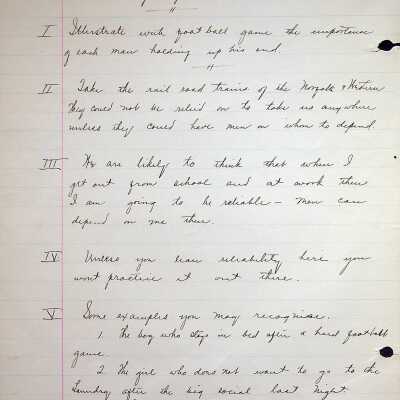 I Illustrate with foot ball game the importance
of each man holding up his end.
II Take the rail road trains of the Norfolk & Western
They could not be relied on to take us anywhere
unless they could have men on whom to depend.
III We are likely to think that when I
get out from school and at work then
I am going to be reliable - men can
depend on me then.
IV Unless you learn reliability here you
wont practice it out there.
V Some examples you may recognize.
1. The boy who stays in bed after a hard football
game.
2. The girl who does not want to go to the
Laundry after the big social last night.